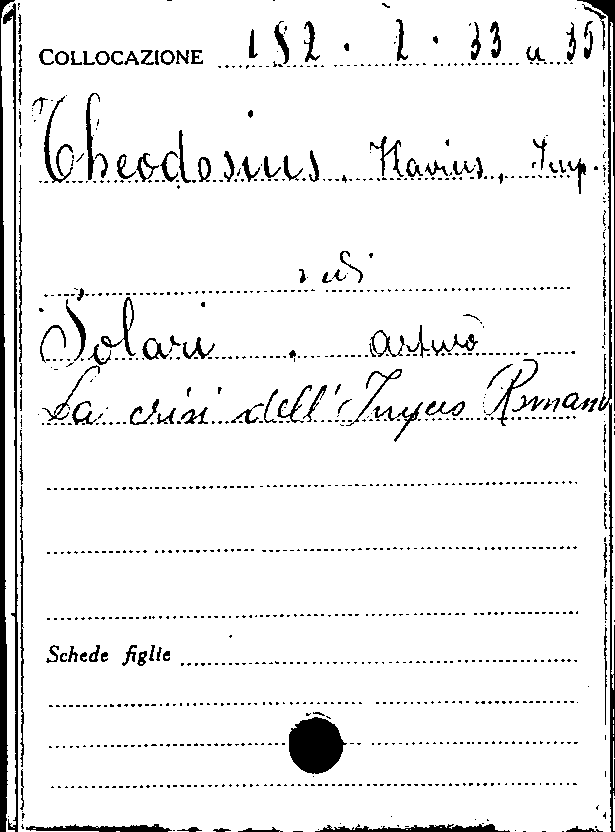 COLLOCAZIONE 182. 2. 33 a 35
Theodosius, Flavius, Imp.
vedi
Solari, Arturo
La crisi dell'Impero Romano
Schede figlie